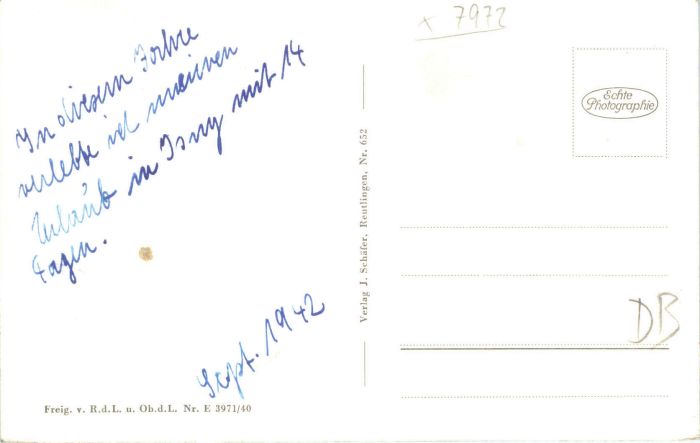 In diesem Jahre
verlebte ich meinen
Urlaub in Isny mit 14
Tagen.
Sept. 1942
Freig. v. R.d.L. u. Ob.d.L. Nr. E 3971/40
Verlag J. Schäfer, Reutlingen, Nr. 652
x 7972
Echte
Photographie
DB